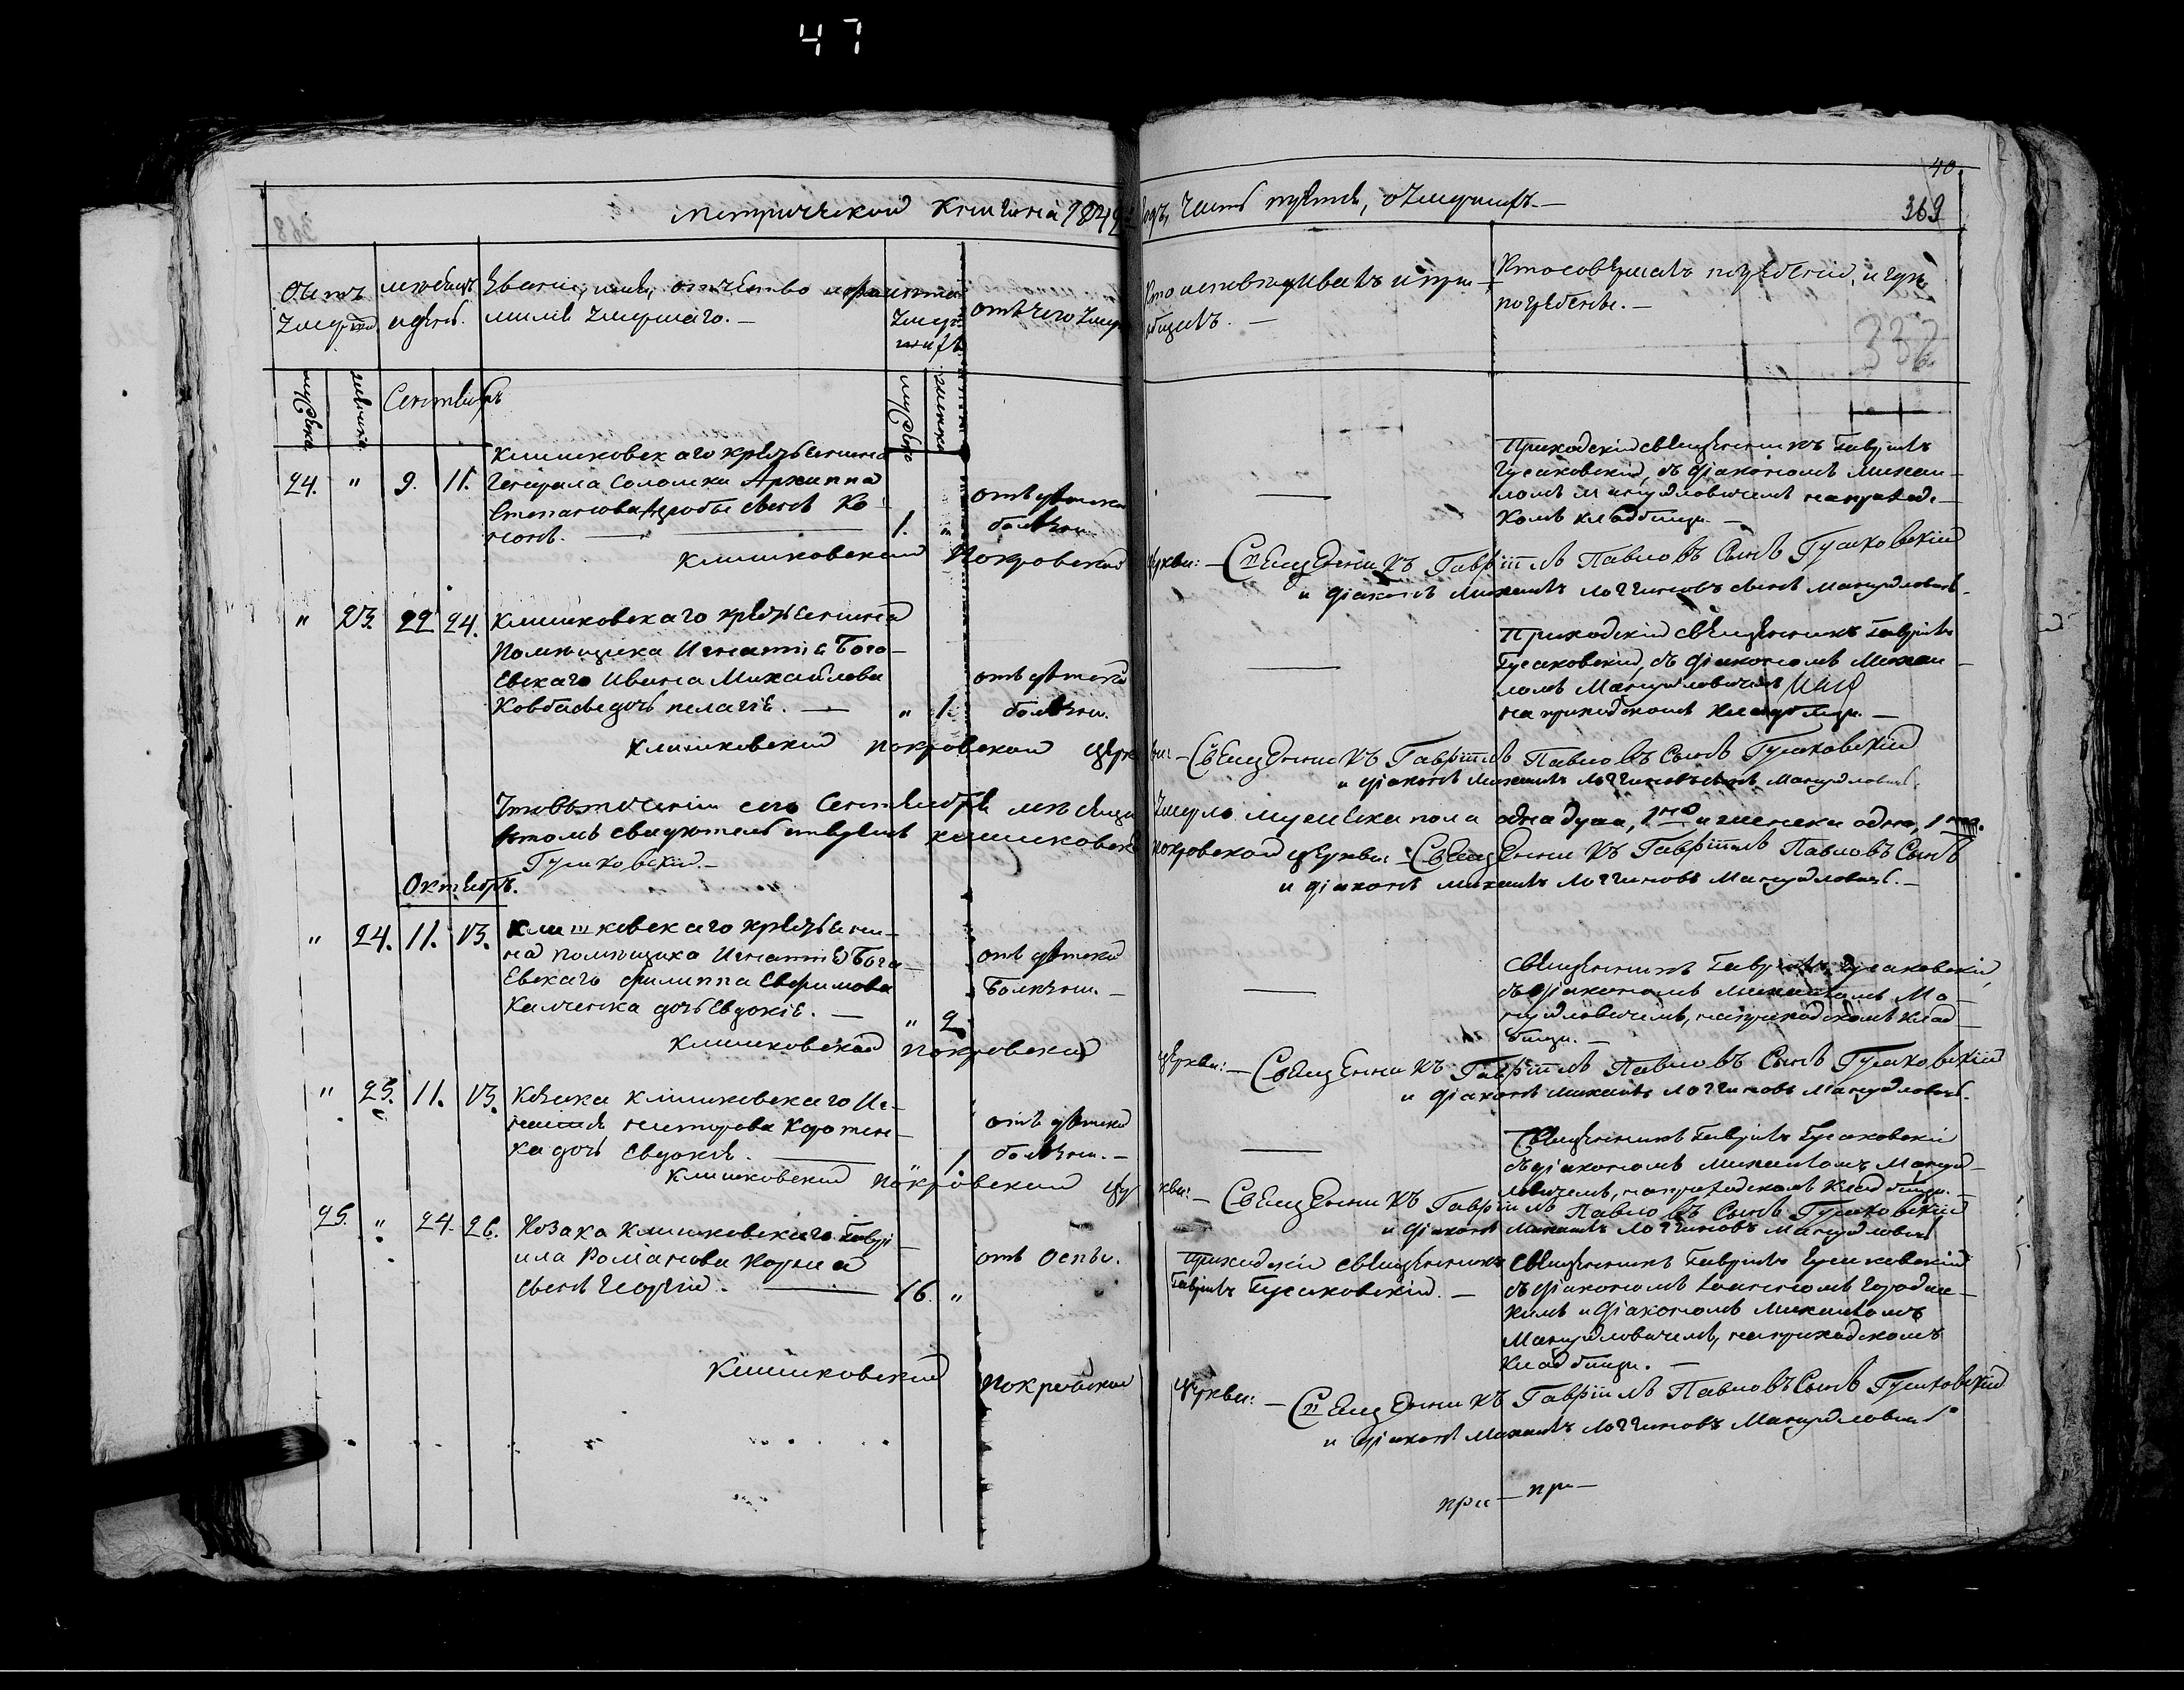 47
40.
369
Метрической Книги на 1849 Годъ, Часть третья, о Умершихъ.—
332
Мѣсяцъ и день.
Званіе, имя, отчество и фамилія Умершаго.—
Лѣта Умершихъ
отъ чего Умер
Кто исповѣдывалъ и пріобщалъ.—
Кто совершалъ погребеніе, и гдѣ
погребены.—
мужеска
женска
Сентябрь
мужеска
женска
Клишковскаго крестьянина
24. " 9. 11. Генерала Соломки Архиппа
Степанова сынъ Ко-
нонъ. — 1. "
отъ дѣтской
болѣзни.
—
Приходскій священникъ Гавріилъ
Гусаковскій, съ діакономъ Михаи-
ломъ Мануиловичемъ на приход-
комъ кладбищѣ.—
Клишковской Покровской Церкви: — Священникъ Гавріилъ Павловъ Сынъ Гусаковскій
и діаконъ Михаилъ Логгиновъ сынъ Мануиловичъ.
" 23. 22 24. Клишковскаго крестьянина
Помѣщика Игнатія Бого-
евскаго Ивана Михайлова
Ковбасы дочь Пелагія. — " 1.
отъ дѣтской
болѣзни.
—
Приходскій священникъ Гавріилъ
Гусаковскій, съ діакономъ Михаи-
ломъ Мануиловичемъ
на приходскомъ кладбищѣ.—
Клишковской Покровской Церкви: — Священникъ Гавріилъ Павловъ Сынъ Гусаковскій
и діаконъ Михаилъ Логгиновъ сынъ Мануиловичъ.
Что въ теченіи сего Сентября мѣсяца Умерло мужеска пола одна душа, 1на и женска одна, 1на.
въ томъ свидѣтельствуемъ Клишковской Покровской Церкви: — Священникъ Гавріилъ Павловъ Сынъ
Гусаковскій.—
и діаконъ Михаилъ Логгиновъ Мануиловичъ.—
Октябрь.
" 24. 11. 13. Клишковскаго крестьяни-
на помѣщика Игнатія Бого-
евскаго Филиппа Евфимова
Калченка дочь Евдокія. — " 2
отъ дѣтской
Болѣзни.—
—
Священникъ Гавріилъ Гусаковскій,
съ діакономъ Михаиломъ Ма-
нуиловичемъ, на приходскомъ клад-
бищѣ.—
Клишковской Покровской Церкви: — Священникъ Гавріилъ Павловъ Сынъ Гусаковскій
и діаконъ Михаилъ Логгиновъ Мануиловичъ.
" 25. 11. 13. Козака Клишковскаго
Несторова
ка дочь Евдокія. — " 1.
отъ дѣтской
болѣзни.—
—
Священникъ Гавріилъ Гусаковскій
съ діакономъ Михаиломъ Мануи-
ловичемъ, на приходскомъ кладбищѣ.—
Клишковской Покровской Церкви: — Священникъ Гавріилъ Павловъ Сынъ Гусаковскій
и діаконъ Михаилъ Логгиновъ Мануиловичъ
25. " 24. 26. Козака Клишковскаго Гаврі-
ила Романова Корша
сынъ Георгій. — 16. "
отъ Оспы.
Приходскій священникъ
Гавріилъ Гусаковскій.—
Священникъ Гавріилъ Гусаковскій
съ діакономъ Іоанномъ Городис-
кимъ и діакономъ Михаиломъ
Мануиловичемъ, на приходскомъ
кладбищѣ.—
Клишковской Покровской Церкви: — Священникъ Гавріилъ Павловъ Сынъ Гусаковскій
и діаконъ Михаилъ Логгиновъ Мануиловичъ.
при— при—